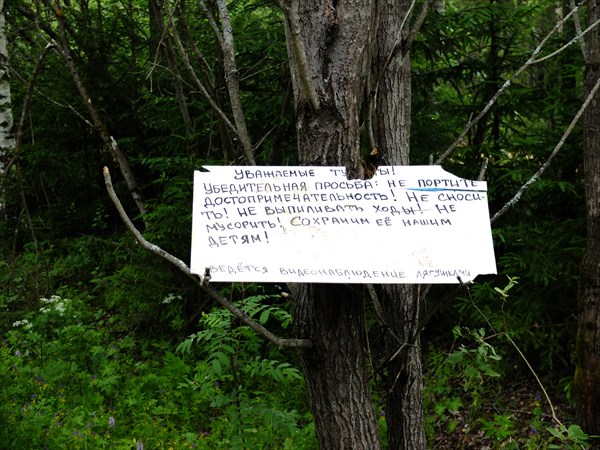 УВАЖАЕМЫЕ ТУ Ы!
УБЕДИТЕЛЬНАЯ ПРОСЬБА: НЕ ПОРТИТЕ
ДОСТОПРИМЕЧАТЕЛЬНОСТЬ! НЕ СНОСИ-
ТЬ! НЕ ВЫПИЛИВАТЬ ХОДЫ! НЕ
МУСОРИТЬ! СОХРАНИМ ЕЁ НАШИМ
ДЕТЯМ!
ВЕДЁТСЯ ВИДЕОНАБЛЮДЕНИЕ ЛЯГУШКАМИ